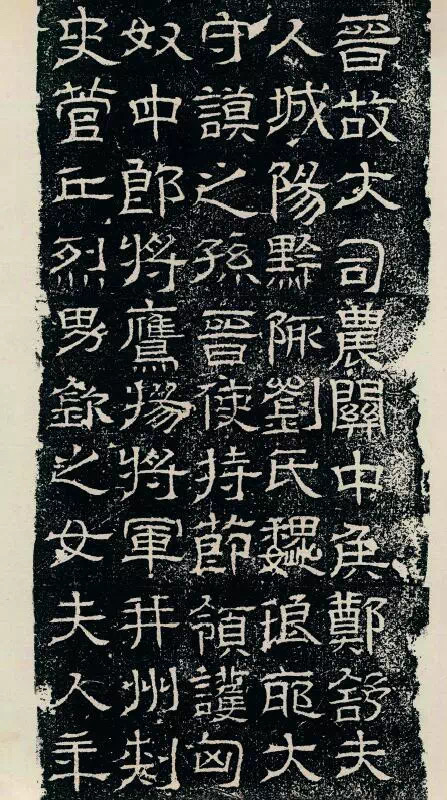 晉故大司農關中侯鄭舒夫
人城陽黔陬劉氏魏琅耶大
守謨之孫晉使持節領護匈
奴中郎將鷹揚將軍并州刾
史菅丘烈男欽之女夫人年